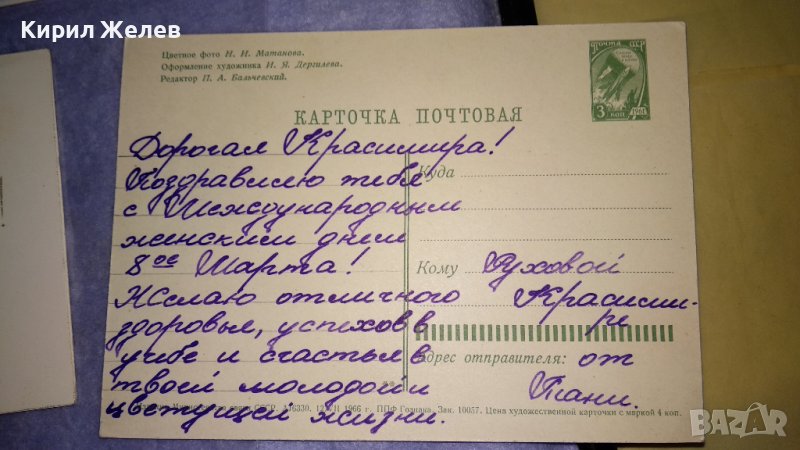 Кирил Желев
Цветное фото Н. И. Матанова.
Оформление художника И. Я. Дергилева.
Редактор П. А. Бальчевский.
ПОЧТА СССР
3 КОП
1961
КАРТОЧКА ПОЧТОВАЯ
Дорогая Красимира!
Поздравляю тебя
с Международным
женским днем
8ое Марта!
Желаю отличного
здоровья, успехов в
учебе и счастья в
твоей молодой
цветущей жизни.
Куда
Кому Руховой
Красими-
ре
Адрес отправителя: от
Тани.
СССР. А06330. 1966 г. ППФ Гознака. Зак. 10057. Цена художественной карточки с маркой 4 коп.
BAZAR